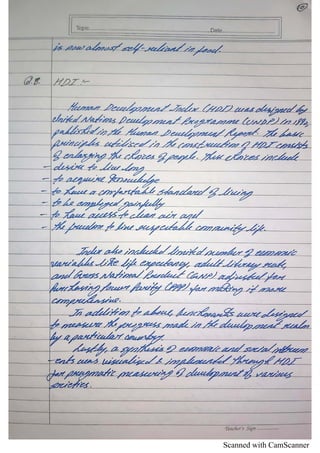 Topic
Date
is now almost self-reliant in food.
Q.8. HDI :-
Human Development Index (HDI) was designed by
United Nations Development Programme (UNDP) in 1990,
published in the Human Development Report. The basic
principles utilised in the construction of HDI consists
of enlarging the choices of people. These choices include
- desire to live long
- to acquire knowledge
- to have a comfortable standard of living
- to be employed gainfully
- to have access to clean air and
- the freedom to live respectable community life.
Index also included limited number of economic
variables like life expectancy, adult literacy rate,
and Gross National Product (GNP) adjusted for
Purchasing Power Parity (PPP) for making it more
comprehensive.
In addition to above, benchmarks were designed
to measure the progress made in the development realm
by a particular country.
Lastly, a synthesis of economic and social instrum
-ents was visualised & implemented through HDI
for pragmatic measuring of development of various
societies.
Teacher's Sign
Scanned with CamScanner